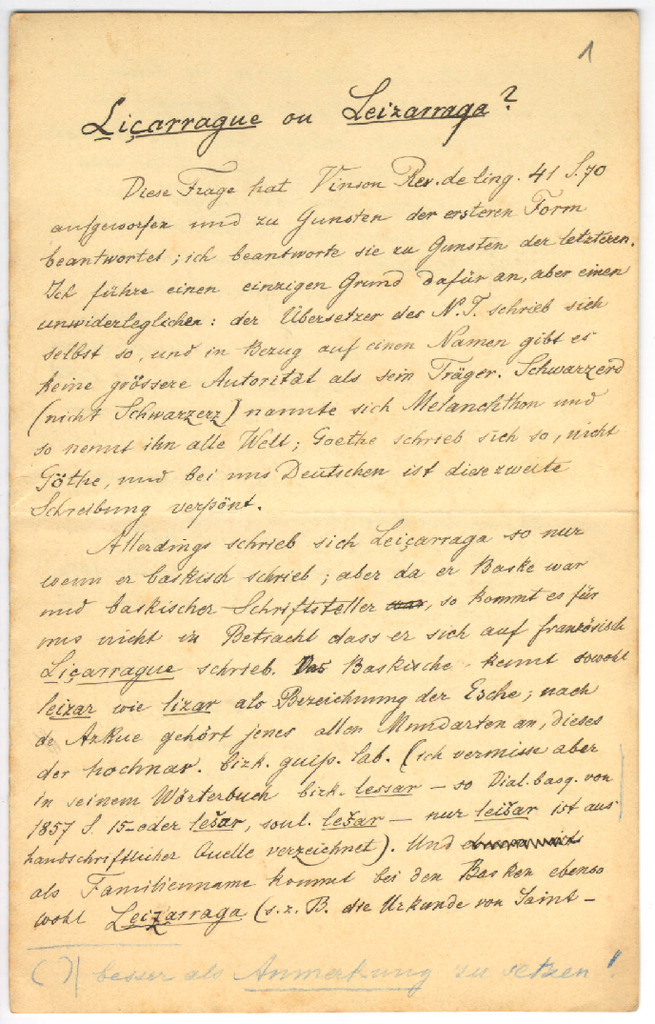 1
Liçarrague ou Leizarraga?
Diese Frage hat Vinson Rev. de ling. 41 S. 70
aufgeworfen und zu Gunsten der ersteren Form
beantwortet; ich beantworte sie zu Gunsten der letzteren.
Ich führe einen einzigen Grund dafür an, aber einen
unwiderleglichen: der Übersetzer des N.T. schrieb sich
selbst so, und in Bezug auf einen Namen gibt es
keine grössere Autorität als sein Träger. Schwarzerd
(nicht Schwarzerz) nannte sich Melanchthon und
so nennt ihn alle Welt; Goethe schrieb sich so, nicht
Göthe, und bei uns Deutschen ist diese zweite
Schreibung verpönt.
Allerdings schrieb sich Leiçarraga so nur
wenn er baskisch schrieb; aber da er Baske war
und baskischer Schriftsteller war, so kommt es für
uns nicht in Betracht dass er sich auf französisch
Liçarrague schrieb. Das Baskische kennt sowohl
leizar wie lizar als Bezeichnung der Esche; nach
de Azkue gehört jenes allen Mundarten an, dieses
der hochnav. bizk. guip. lab. (ich vermisse aber
in seinem Wörterbuch bizk. lessar – so Dial. basq. von
1857 S. 15 – oder lešar, soul. lešar – nur leišar ist aus
handschriftlicher Quelle verzeichnet). Und
als Familienname kommt bei den Basken ebenso
wohl Leizarraga (s. z. B. die Urkunde von Saint-
(?) besser als Anmerkung zu setzen!